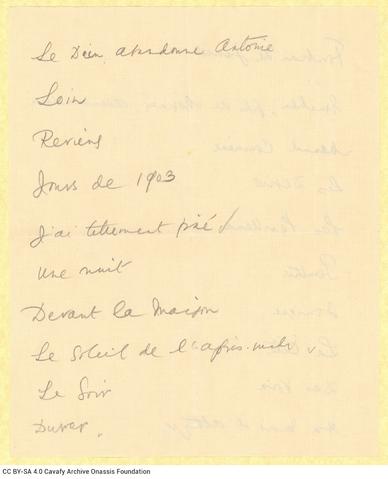 Le Dieu abandonne Antoine
Loin
Reviens
Jours de 1903
J'ai tellement fixé
Une nuit
Devant la Maison
Le Soleil de l'après-midi
Le Soir
Durer.
CC BY-SA 4.0 Cavafy Archive Onassis Foundation